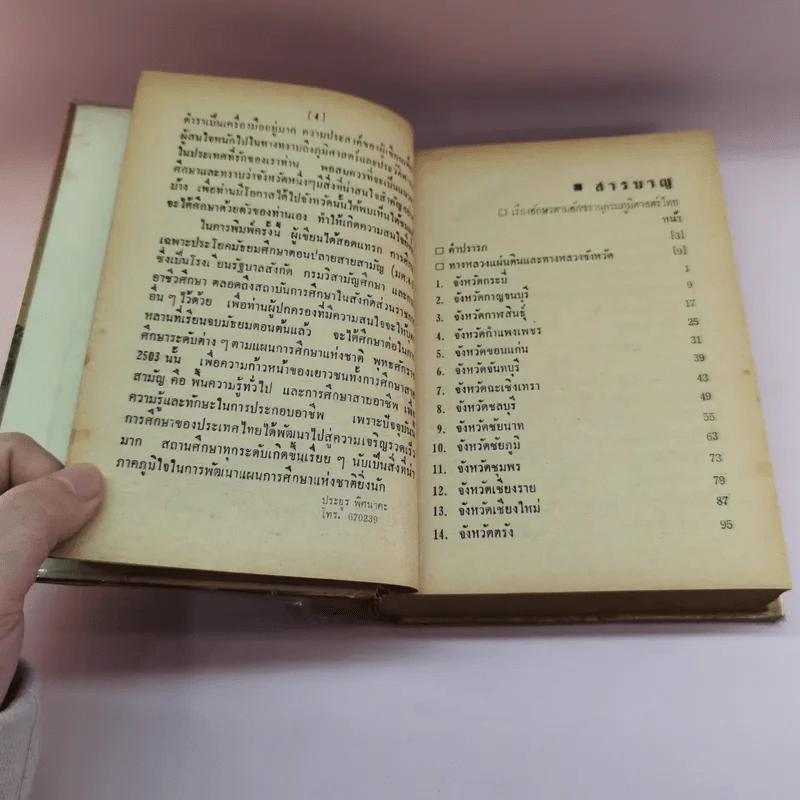 [4]
ตำราเป็นเครื่องมืออยู่มาก ความประสงค์ของผู้เขียนเพื่อ
ผู้สนใจหนักไปในทางทราบถึงภูมิศาสตร์และประวัติศาส
ในประเทศที่รักของเราท่าน พอสมควรที่จะเป็นแนว
ศึกษาและทราบว่าจังหวัดหนึ่งๆมีสิ่งที่น่าสนใจสำคัญ
บ้าง เพื่อท่านมีโอกาสได้ไปจังหวัดนั้นได้พบเห็นได้
จะได้ศึกษาด้วยตัวของท่านเอง ทำให้เกิดความสนใจ
ในการพิมพ์ครั้งนี้ ผู้เขียนได้สอดแทรก การศึกษา
เฉพาะประโยคมัธยมศึกษาตอนปลายสายสามัญ (ม.ศ.
ซึ่งเป็นโรงเรียนรัฐบาลสังกัด กรมวิสามัญศึกษา และ
อาชีวศึกษา ตลอดถึงสถาบันการศึกษาในสังกัดส่วนราช
อื่น ๆ ไว้ด้วย เพื่อท่านผู้ปกครองที่มีความสนใจจะให้บุตร
หลานที่เรียนจบมัธยมตอนต้นแล้ว จะได้ศึกษาต่อใน
ศึกษาระดับต่าง ๆ ตามแผนการศึกษาแห่งชาติ พุทธศักราช
2503 นั้น เพื่อความก้าวหน้าของเยาวชนทั้งการศึกษาสาย
สามัญ คือ พื้นความรู้ทั่วไป และการศึกษาสายอาชีพ เพื่อ
ความรู้และทักษะในการประกอบอาชีพ เพราะปัจจุบันนี้
การศึกษาของประเทศไทยได้พัฒนาไปสู่ความเจริญรวดเร็ว
มาก สถานศึกษาทุกระดับเกิดขึ้นเรื่อย ๆ นับเป็นสิ่งที่น่า
ภาคภูมิใจในการพัฒนาแผนการศึกษาแห่งชาติยิ่งนัก
ประยูร พิศนาคะ
โทร. 670239
■ สารบาญ
□ เรียงอักษรตามอักขรานุกรมภูมิศาสตร์ไทย
หน้า
□ คำปรารภ [3]
□ ทางหลวงแผ่นดินและทางหลวงจังหวัด [9]
1. จังหวัดกระบี่ 1
2. จังหวัดกาญจนบุรี 9
3. จังหวัดกาฬสินธุ์ 17
4. จังหวัดกำแพงเพชร 25
5. จังหวัดขอนแก่น 31
6. จังหวัดจันทบุรี 39
7. จังหวัดฉะเชิงเทรา 43
8. จังหวัดชลบุรี 49
9. จังหวัดชัยนาท 55
10. จังหวัดชัยภูมิ 63
11. จังหวัดชุมพร 73
12. จังหวัดเชียงราย 79
13. จังหวัดเชียงใหม่ 87
14. จังหวัดตรัง 95